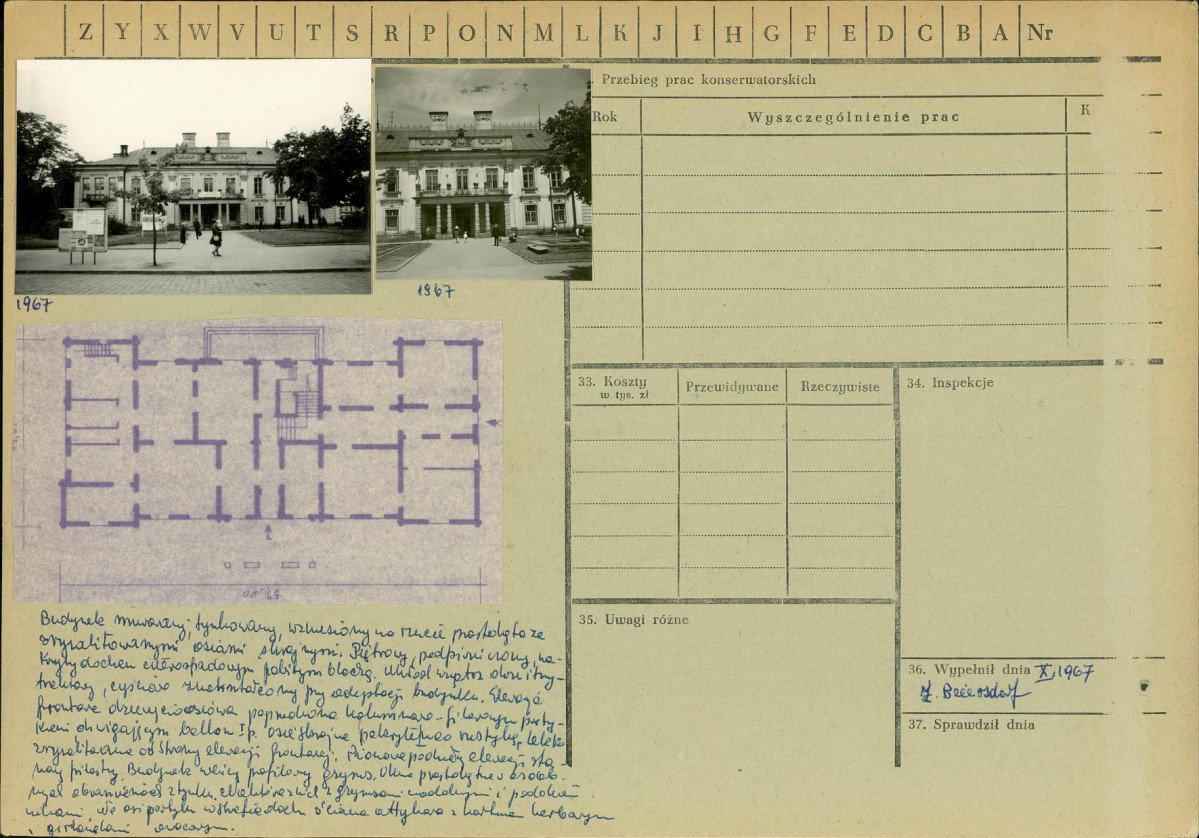 Z Y X W V U T S R P O N M L K J I H G F E D C B A Nr
Przebieg prac konserwatorskich
Rok
Wyszczególnienie prac
K
1967
1967
33. Koszty
w tys. zł
Przewidywane
Rzeczywiste
34. Inspekcje
35. Uwagi różne
36. Wypełnił dnia X, 1967
37. Sprawdził dnia
Budynek murowany, tynkowany, wzniesiony na rzucie prostokąta ze
zryzalitowanymi osiami skrajnymi. Piętrowy, podpiwniczony, na-
kryty dachem czterospadowym pobitym blachą. Układ wnętrz dwu i trzy-
traktowy, zniekształcony przy adaptacji budynku. Elewacja
frontowa dziewięcioosiowa poprzedzona kolumnowo-filarowym porty-
kiem dźwigającym balkon I p.
zryzalitowane od strony elewacji frontowej. Pionowe podziały elewacji sta-
nowią pilastry. Budynek wieńczy profilowy gzyms. Okna prostokątne w
obramieniach z tynku, z gzymsami nadokiennymi i podokien-
nikami. We osi portyku ściana attykowa z kartuszem herbowym
i girlandami